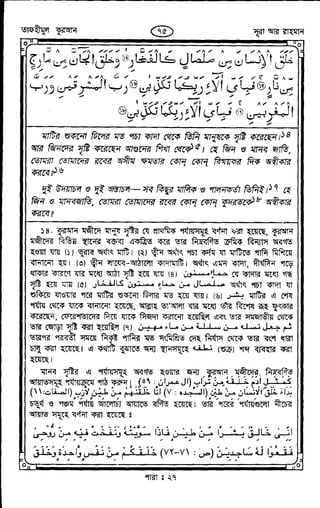 তাফহীমুল কুরআন
৭৫
সূরা আর রাহমান
خَلَقَ الْإِنْسَانَ مِنْ صَلْصَالٍ كَالْفَخَّارِ ۝ وَخَلَقَ الْجَانَّ مِنْ مَارِجٍ
مِنْ نَارٍ ۝ فَبِأَيِّ آلَاءِ رَبِّكُمَا تُكَذِّبَانِ ۝ رَبُّ الْمَشْرِقَيْنِ وَرَبُّ
الْمَغْرِبَيْنِ ۝ فَبِأَيِّ آلَاءِ رَبِّكُمَا تُكَذِّبَانِ ۝
মাটির শুকনো ঢিলের মত পচা কাদা থেকে তিনি মানুষকে সৃষ্টি করেছেন।১৪
আর জিনদের সৃষ্টি করেছেন আগুনের শিখা থেকে। হে জিন ও মানব জাতি,
তোমরা তোমাদের রবের অসীম ক্ষমতার কোন্ কোন্ বিস্ময়কর দিক অস্বীকার
করবে?১৬
দুই উদয়াচল ও দুই অস্তাচল— সব কিছুর মালিক ও পালনকর্তা তিনিই।১৭ হে
জিন ও মানবজাতি, তোমরা তোমাদের রবের কোন্ কোন্ কুদরতকে১৮ অস্বীকার
করবে?
১৪. কুরআন মজীদে মানুষ সৃষ্টির যে প্রাথমিক পর্যায়সমূহ বর্ণনা করা হয়েছে, কুরআন
মজীদের বিভিন্ন স্থানের বক্তব্য একত্রিত করে তার নিম্নবর্ণিত ক্রমিক বিন্যাস অবগত
হওয়া যায়। (১) তুরাব অর্থাৎ মাটি। (২) ত্বীন অর্থাৎ পচা কর্দম যা মাটিতে পানি মিশিয়ে
বানানো হয়। (৩) ত্বীন লাযেব-আঠালো কাদামাটি। অর্থাৎ এমন কাদা, দীর্ঘদিন পড়ে
থাকার কারণে যার মধ্যে আঠা সৃষ্টি হয়ে যায় (৪) حمإ مسنون যে কাদার মধ্যে গন্ধ
সৃষ্টি হয়ে যায় (৫) صلصال من حمإ مسنون كالفخار অর্থাৎ পচা কাদা যা
শুকিয়ে যাওয়ার পরে মাটির শুকনো ঢিলার মত হয়ে যায় (৬) بشر মাটির এ শেষ
পর্যায় থেকে যাকে বানানো হয়েছে, আল্লাহ তা'আলা যার মধ্যে তাঁর বিশেষ রূহ ফুৎকার
করেছেন, ফেরেশতাদের দিয়ে যাকে সিজদা করানো হয়েছিল এবং তার সমজাতীয় থেকে
তার জোড়া সৃষ্টি করা হয়েছিল (৭) ثم جعل نسله من سللة من ماء مهين
তারপর পরবর্তী সময়ে নিকৃষ্ট পানির মত সংমিশ্রিত দেহ নির্যাস থেকে তার বংশ ধারা
চালু করা হয়েছে। এ কথাটি বুঝাতে অন্য স্থানসমূহে نطفة (শুক্র) শব্দ ব্যবহার করা
হয়েছে।
মানব সৃষ্টির এ পর্যায়সমূহ অবগত হওয়ার জন্য কুরআন মজীদের, নিম্নবর্ণিত
আয়াতসমূহ পর্যায়ক্রমে পাঠ করুন। كَمَثَلِ آدَمَ خَلَقَهُ مِنْ تُرَابٍ (ال عمران : ٥٩)
بَدَأَ خَلْقَ الْإِنْسَانِ مِنْ طِينٍ (السجدة : ٧) إِنَّا خَلَقْنَاهُمْ مِنْ طِينٍ لَازِبٍ (الصافات : ١١)
চতুর্থ ও পঞ্চম পর্যায় আলোচ্য আয়াতে বর্ণিত হয়েছে। তার পরের পর্যায়গুলো নীচের
আয়াত সমূহে বর্ণনা করা হয়েছে ঃ
إِنِّي خَالِقٌ بَشَرًا مِنْ طِينٍ فَإِذَا سَوَّيْتُهُ وَنَفَخْتُ فِيهِ مِنْ رُوحِي
فَقَعُوا لَهُ سَاجِدِينَ (ص : ٧١-٧٢) خَلَقَكُمْ مِنْ نَفْسٍ وَاحِدَةٍ وَخَلَقَ
পারা : ২৭